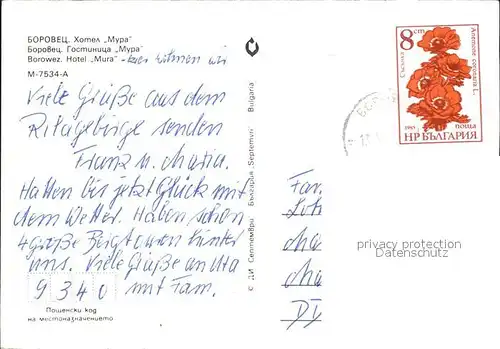 БОРОВЕЦ. Хотел „Мура"
Боровец. Гостиница „Мура"
Borowez. Hotel „Mura" - hier wohnen wir
М-7534-А
Viele Grüße aus dem
Rilagebirge senden
Franz u. Maria.
Hatten bis jetzt Glück mit
dem Wetter. Haben schon
4 große Bergtouren hinter
uns. Viele Grüße an Uta
mit Fam.
9 3 4 0
Пощенски код
на местоназначението
© ДИ Септември България Septemvri Bulgaria
8 cm
Съсънка
Anemone coronaria L.
1985 поща
НР БЪЛГАРИЯ
Fam.
privacy protection
Datenschutz